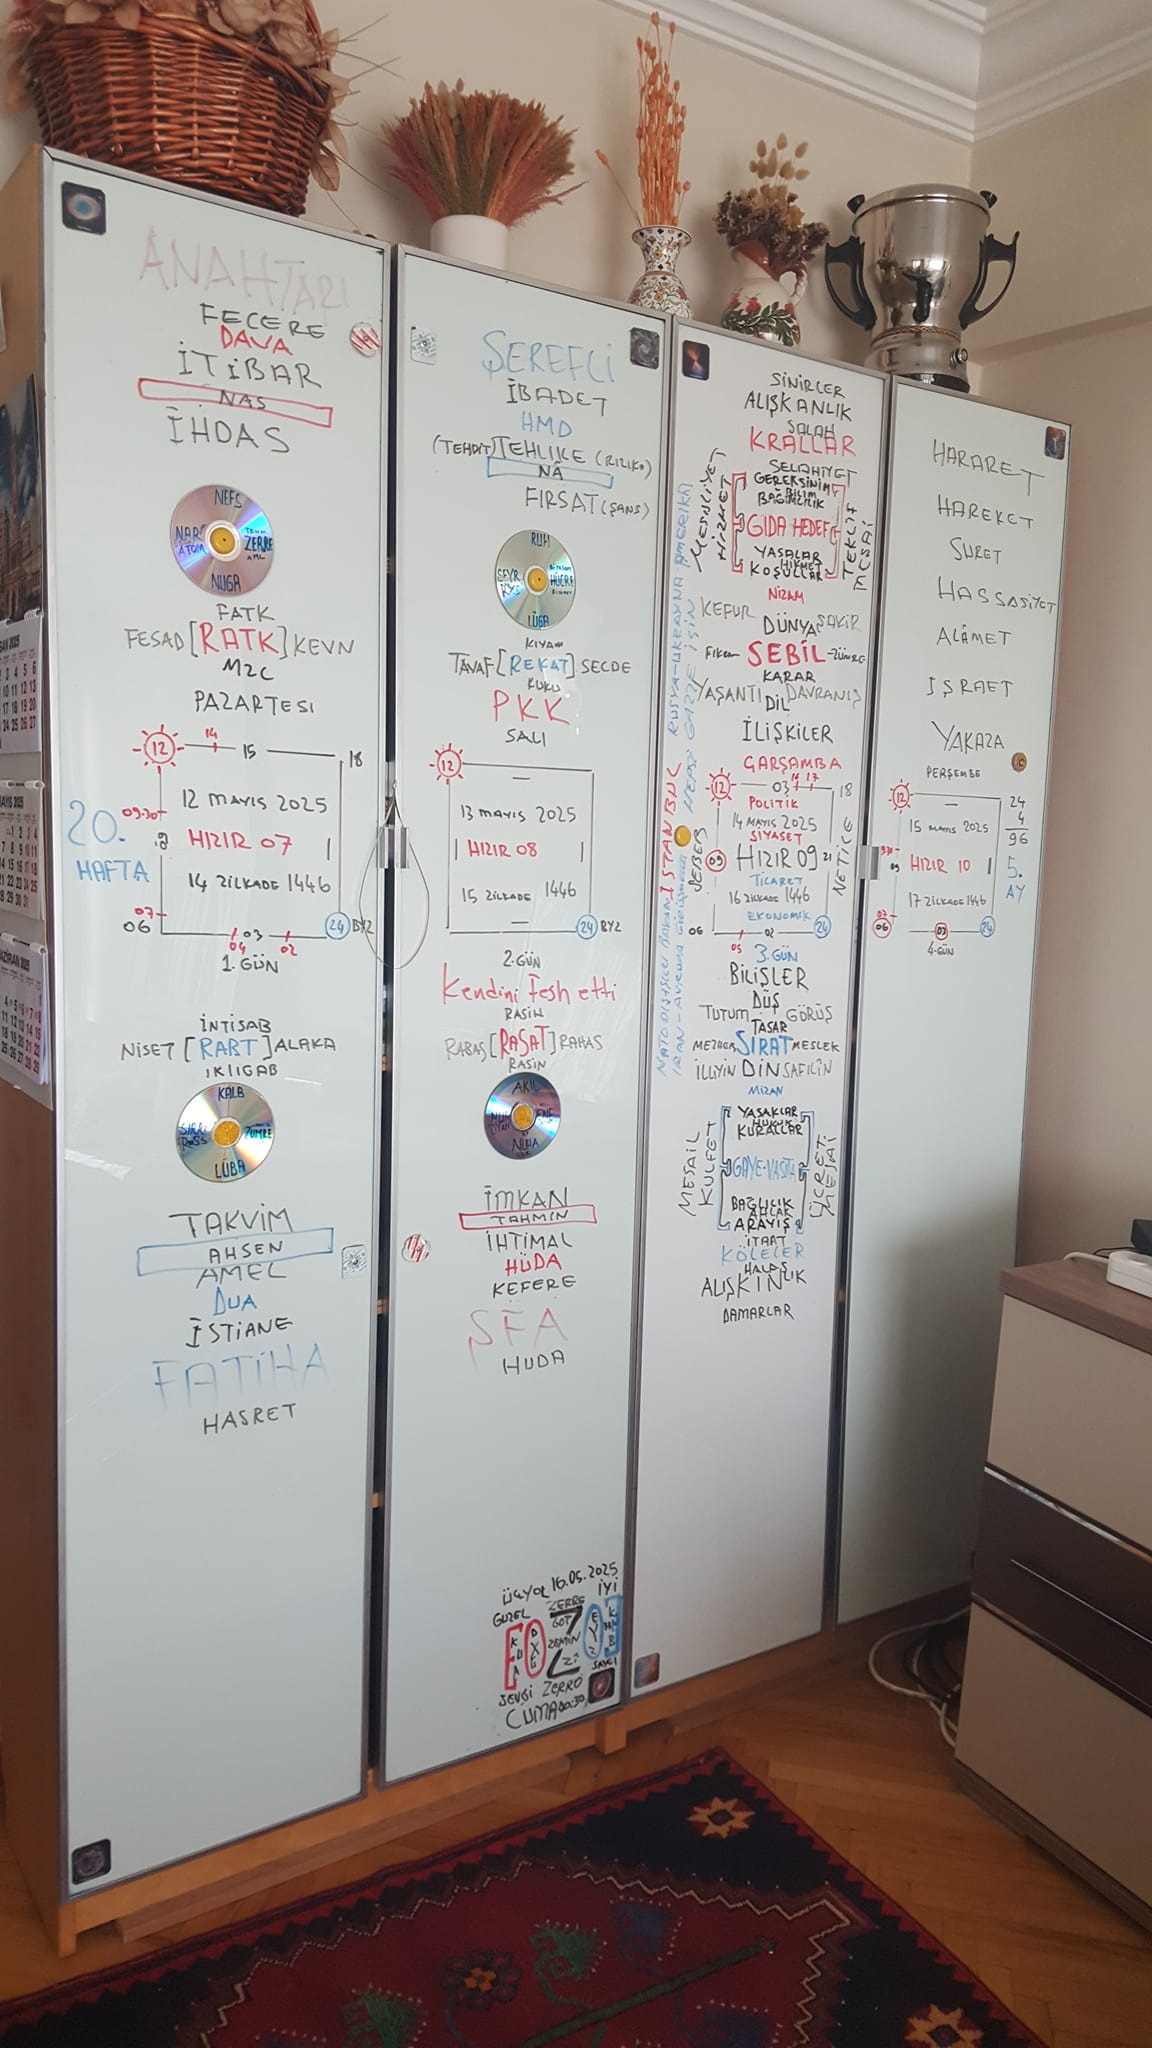 ANAHTARI
FECERE
DAVA
İTİBAR
NAS
İHDAS
NEFS
NAR
ATOM
ZERRE
NUGA
FATK
FESAD [RATK] KEVN
MZC
PAZARTESI
12
14
15
18
09:30
12 MAYIS 2025
20.
HAFTA
HIZIR 07
14 ZİLKADE 1446
07
06
04
03
02
24
BYZ
1. GÜN
İNTİSAB
NİSET [RABT] ALAKA
IKLIGAB
KALB
ZÜMRE
LÜBA
TAKVİM
AHSEN
AMEL
DUA
İSTİANE
FATİHA
HASRET
ŞEREFLİ
İBADET
HMD
(TEHDİT) TEHLIKE (RIZIKO)
NÂ
FIRSAT (ŞANS)
RUH
HÜCRE
LÜGA
KIYAM
TAVAF [REKAT] SECDE
RUKU
PKK
SALI
12
13 MAYIS 2025
HIZIR 08
15 ZILKADE 1446
24
BYZ
2.GÜN
Kendini Fesh etti
RASİH
RABAS [RASAT] RAHAS
RASİN
AKIL
NUR
NUHA
İMKAN
TAHMIN
İHTİMAL
HÜDA
KEFERE
ŞFA
HUDA
ÜÇYOL 16.05.2025
GÜZEL
ZERRE
İYİ
GÖT
ZEMİN
SEVGİ
ZERRO
SAYGI
CUMA 00:30
SİNİRLER
ALIŞKANLIK
SALAH
KRALLAR
SELAHİYET
GEREKSİNİM
BİLİM
BAĞIMLILIK
MESULİYET
HİZMET
GIDA HEDEF
TEKLİF
MESAİ
YASALAR
HİKMET
KOŞULLAR
NİZAM
KEFUR
DÜNYA
ŞAKİR
SEBİL
KARAR
YAŞANTI
DİL
DAVRANIŞ
İLİŞKİLER
ÇARŞAMBA
12
03
18
POLİTİK
14 MAYIS 2025
SİYASET
09
HIZIR 09
21
TİCARET
16 ZİLKADE 1446
EKONOMİK
06
05
02
24
SEBEB
NETİCE
İSTANBUL
RUSYA-UKRAYNA AMERİKA
HEPSİ GAZZE İÇİN
3.GÜN
BİLİŞLER
DÜŞ
TUTUM
GÖRÜŞ
TASAR
SIRAT MESLEK
İLLİYİN DİN SAFİLİN
MİZAN
YASAKLAR
HUKUK
KURALLAR
MESAİL
KÜLFET
GAYE-VASITA
ÜCRET
MESAİ
BAĞLILIK
AHLAK
ARAYIŞ
İTAAT
KÖLELER
HALAS
ALIŞKINLIK
DAMARLAR
HARARET
HAREKET
SURET
HASSASİYET
ALÂMET
İŞRAET
YAKAZA
PERŞEMBE
12
24
4
96
15 MAYIS 2025
09
HIZIR 10
5.
AY
17 ZİLKADE 1446
07
06
03
24
4.GÜN